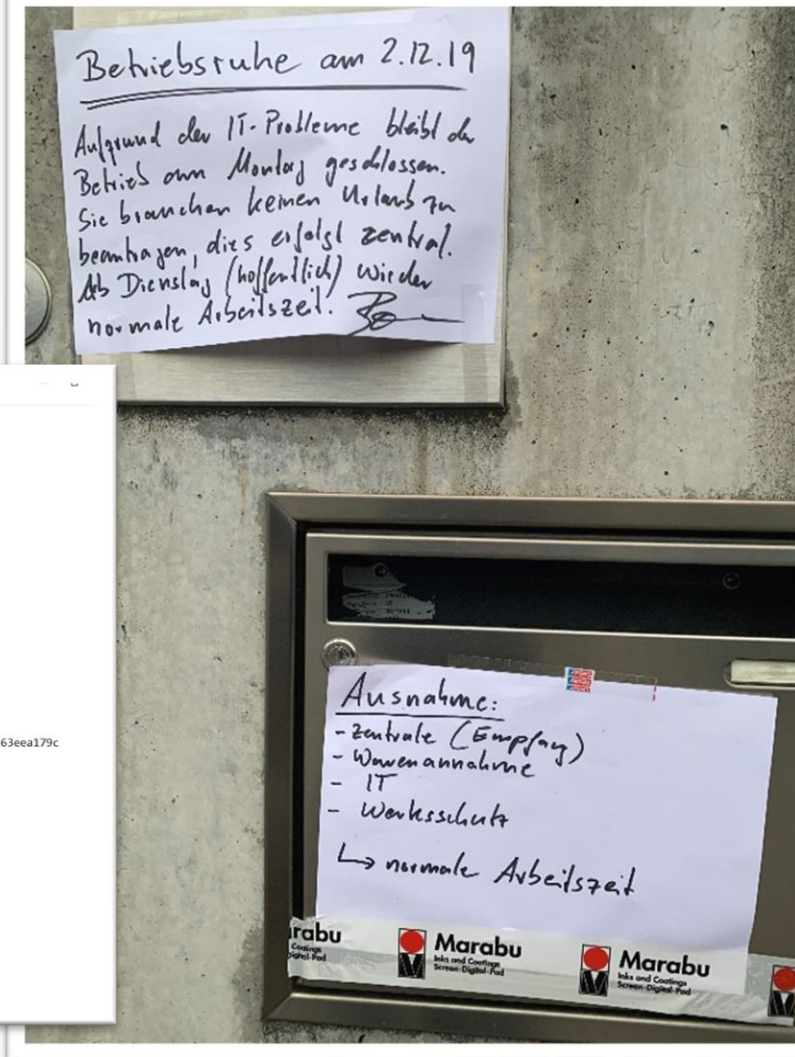 Betriebsruhe am 2.12.19
Aufgrund der IT-Probleme bleibt der
Betrieb am Montag geschlossen.
Sie brauchen keinen Urlaub zu
beantragen, dies erfolgt zentral.
Ab Dienstag (hoffentlich) wieder
normale Arbeitszeit!
63eea179c
Ausnahme:
- Zentrale (Empfang)
- Warenannahme
- IT
- Werksschutz
↳ normale Arbeitszeit
rabu
Coatings
Digital-Pad
Marabu
Inks and Coatings
Screen-Digital-Pad
Marabu
Inks and Coatings
Screen-Digital-Pad